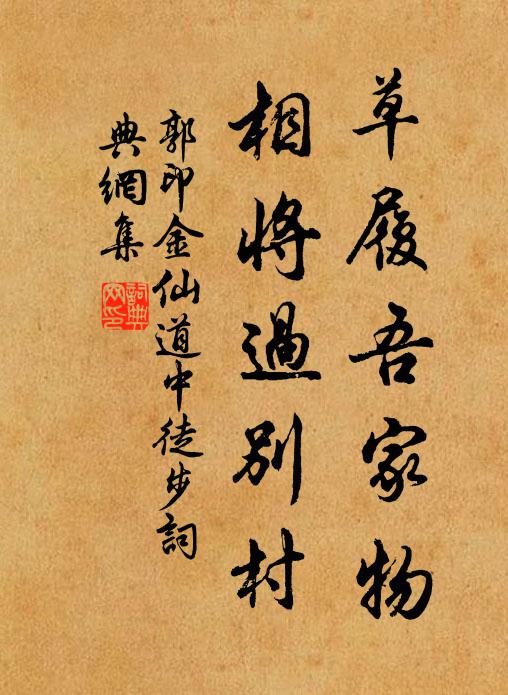 草履吾家物
相將過別村
郭印金仙道中徒步詞
典網集
詞典
網印